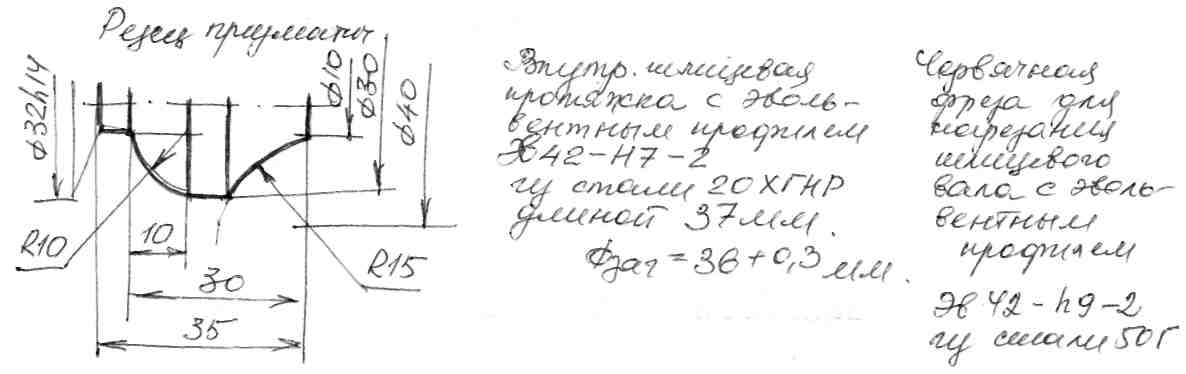 Резец призматич
ф32h14
ф10
ф30
ф40
R10
10
R15
30
35
Внутр. шлицевая
протяжка с эволь-
вентным профилем
Эв42-H7-2
из стали 20ХГНР
длиной 37мм.
фзаг = 36+0,3 мм.
Червячная
фреза для
нарезания
шлицевого
вала с эволь-
вентным
профилем
Эв 42-h9-2
из стали 50Г